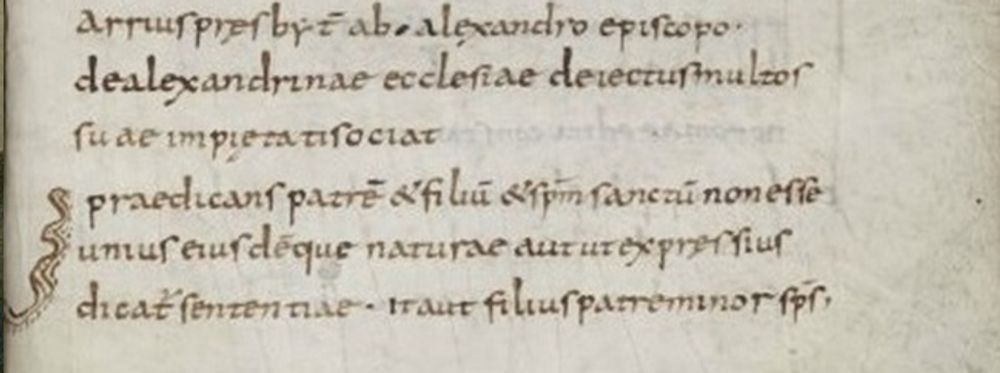 arriuspresbyt̄ ab· alexandro episcopo·
dealexandrinae ecclesiae deiectusmultos
suae impietatisociat
praedicans patrē &filiū &sp̄m sanctū nonesse
unius eiusdēque naturae aututexpressius
dicat̄ sententiae· itaut filiuspatreminor sp̄s,